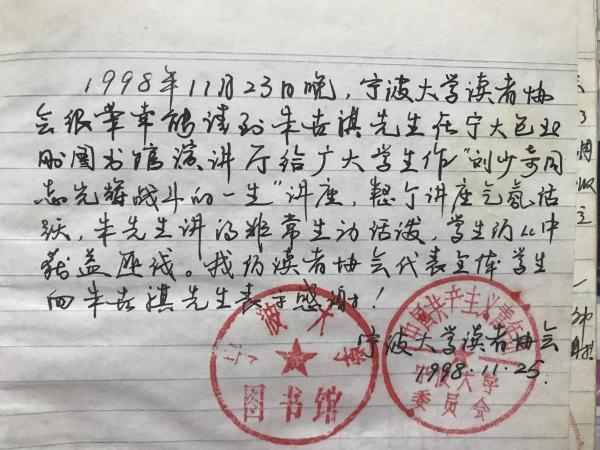 1998年11月23日晚,宁波大学读者协
会很荣幸能请到朱吉祺先生在宁大包玉
刚图书馆演讲厅给广大学生作"刘少奇同
志光辉战斗的一生"讲座,整个讲座气氛活
跃,朱先生讲得非常生动活泼,学生仍从中
获益匪浅。我仍读者协会代表全体学生
向朱吉祺先生表示感谢!
宁波大学读者协会
1998.11.25.
宁波大学
图书馆
中国共产主义青年团
宁波大学
委员会